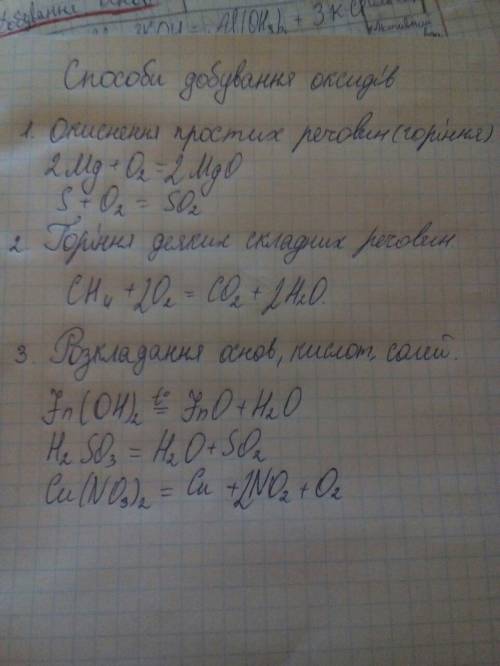 KOH = Al(OH)3 + 3K
Способи добування оксидів
1. Окиснення простих речовин (горіння)
2Mg + O2 = 2MgO
S + O2 = SO2
2. Горіння деяких складних речовин.
CH4 + 2O2 = CO2 + 2H2O.
3. Розкладання основ, кислот, солей.
Zn(OH)2 t°= ZnO + H2O
H2SO3 = H2O + SO2
Cu(NO3)2 = Cu + 2NO2 + O2